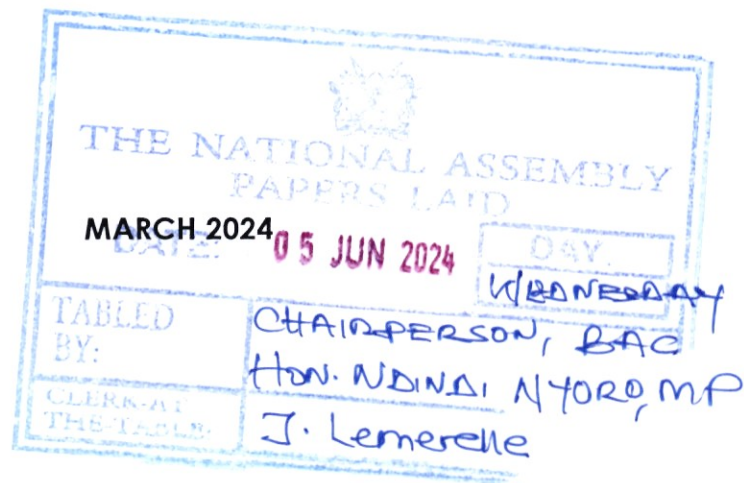 THE NATIONAL ASSEMBLY
PAPERS LAID
MARCH 2024
DATE: 05 JUN 2024
DAY.
WEDNESDAY
TABLED BY:
CHAIRPERSON, BAC
HON. NDINDI NYORO, MP
CLERK-AT THE-TABLE:
J. Lemerelle